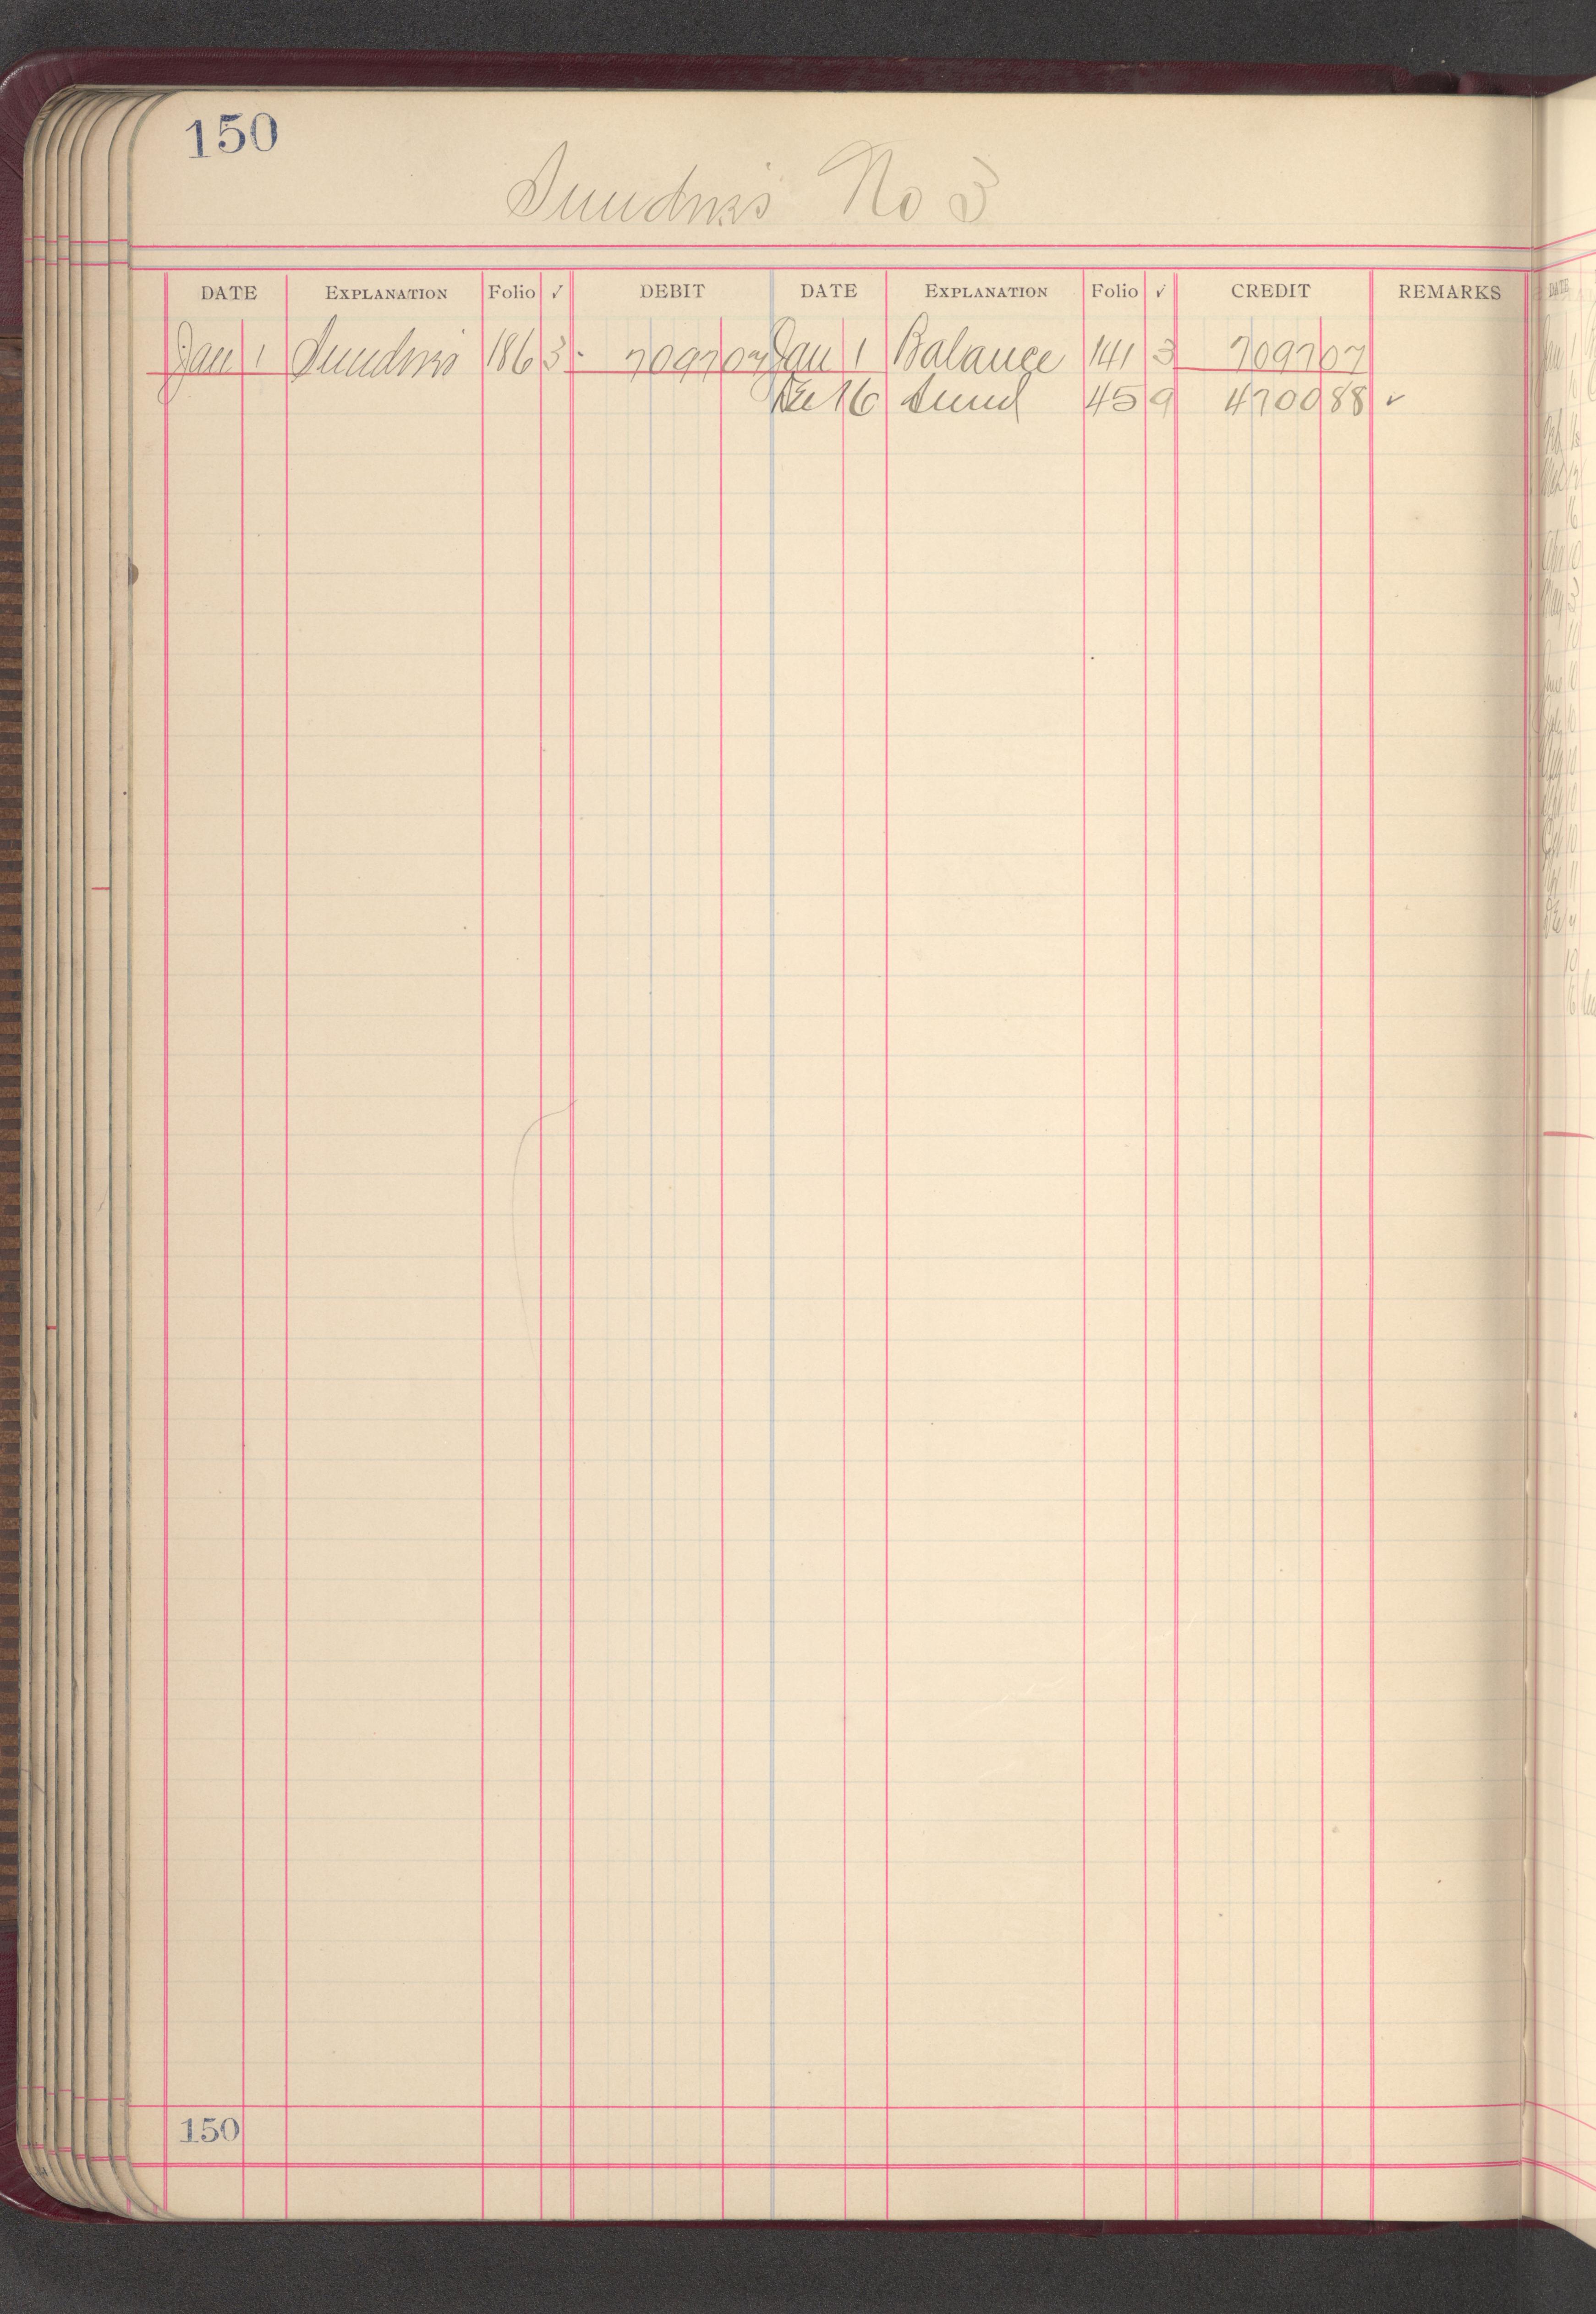 150
Sundries No 3
DATE EXPLANATION Folio √ DEBIT DATE EXPLANATION Folio √ CREDIT REMARKS
Jan 1 Sundries 186 3 709707 Jan 1 Balance 141 3 709707
Dec 16 Sund 45 9 470088 ✓
150